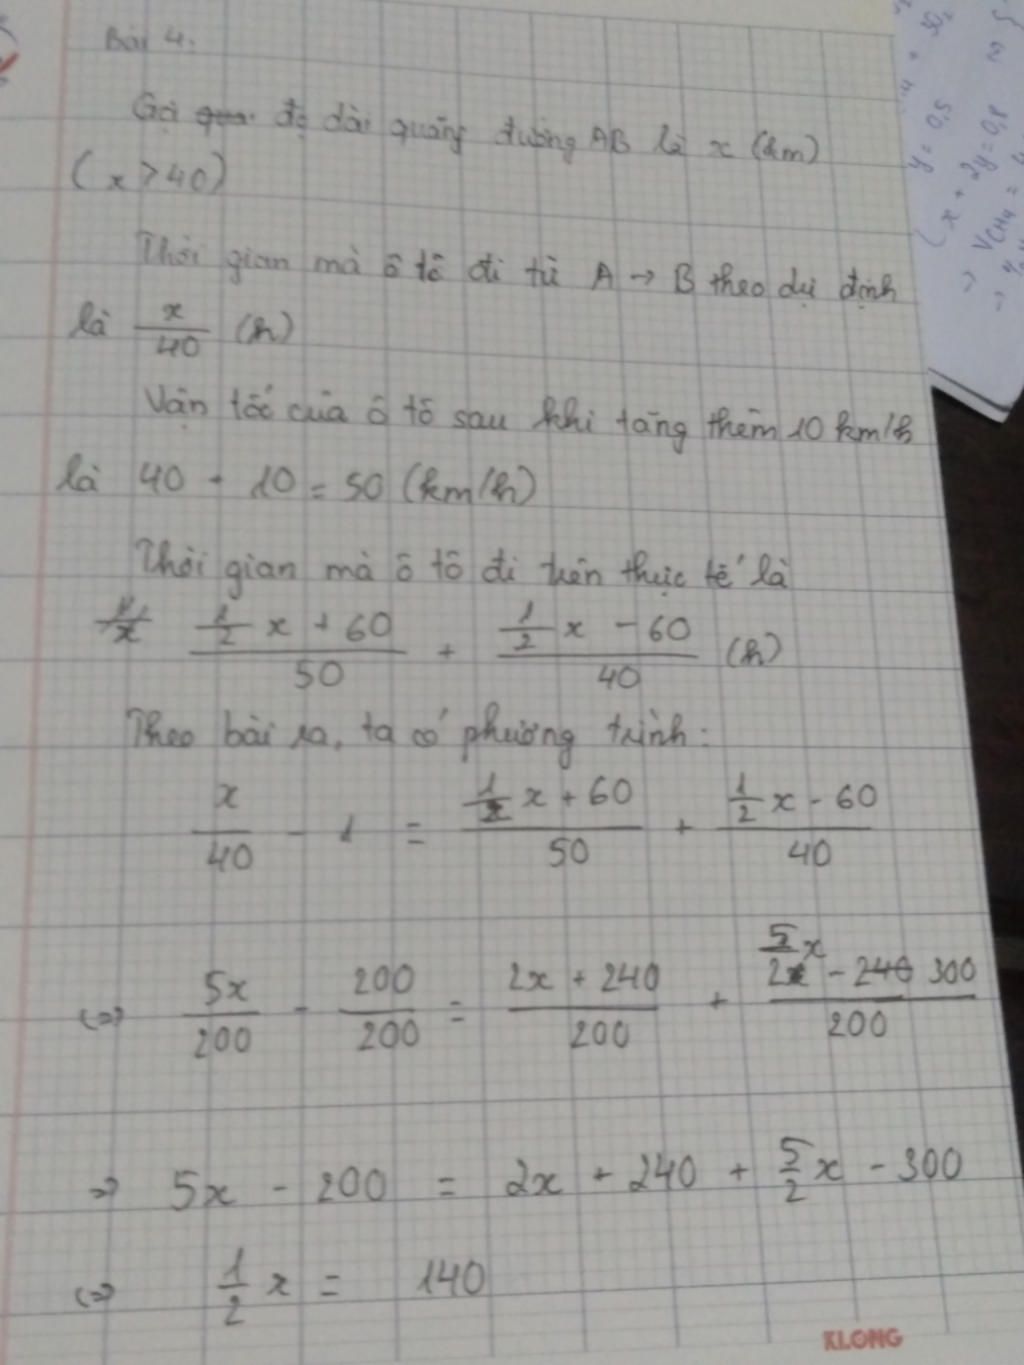 Bài 4.
Gọi độ dài quãng đường AB là x (km)
(x > 40)
Thời gian mà ô tô đi từ A → B theo dự định
là x/40 (h)
Vận tốc của ô tô sau khi tăng thêm 10 km/h
là 40 + 10 = 50 (km/h)
Thời gian mà ô tô đi trên thực tế là
(1/2 x + 60)/50 + (1/2 x - 60)/40 (h)
Theo bài ra, ta có phương trình:
x/40 - 1 = (1/2 x + 60)/50 + (1/2 x - 60)/40
<=> 5x/200 - 200/200 = (2x + 240)/200 + (5/2 x - 300)/200
=> 5x - 200 = 2x + 240 + 5/2 x - 300
<=> 1/2 x = 140
KLONG
y = 0,5
x + 2y = 0,8